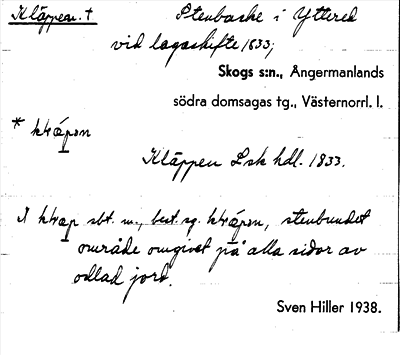 Kläppen. † Stenbacke i Yttered
vid lagaskifte 1833;
Skogs s:n., Ångermanlands
södra domsagas tg., Västernorrl. l.
*
Kläppen Lsk hdl. 1833.
sbt. m., best. sg. stenbundet
område omgivet på alla sidor av
odlad jord.
Sven Hiller 1938.